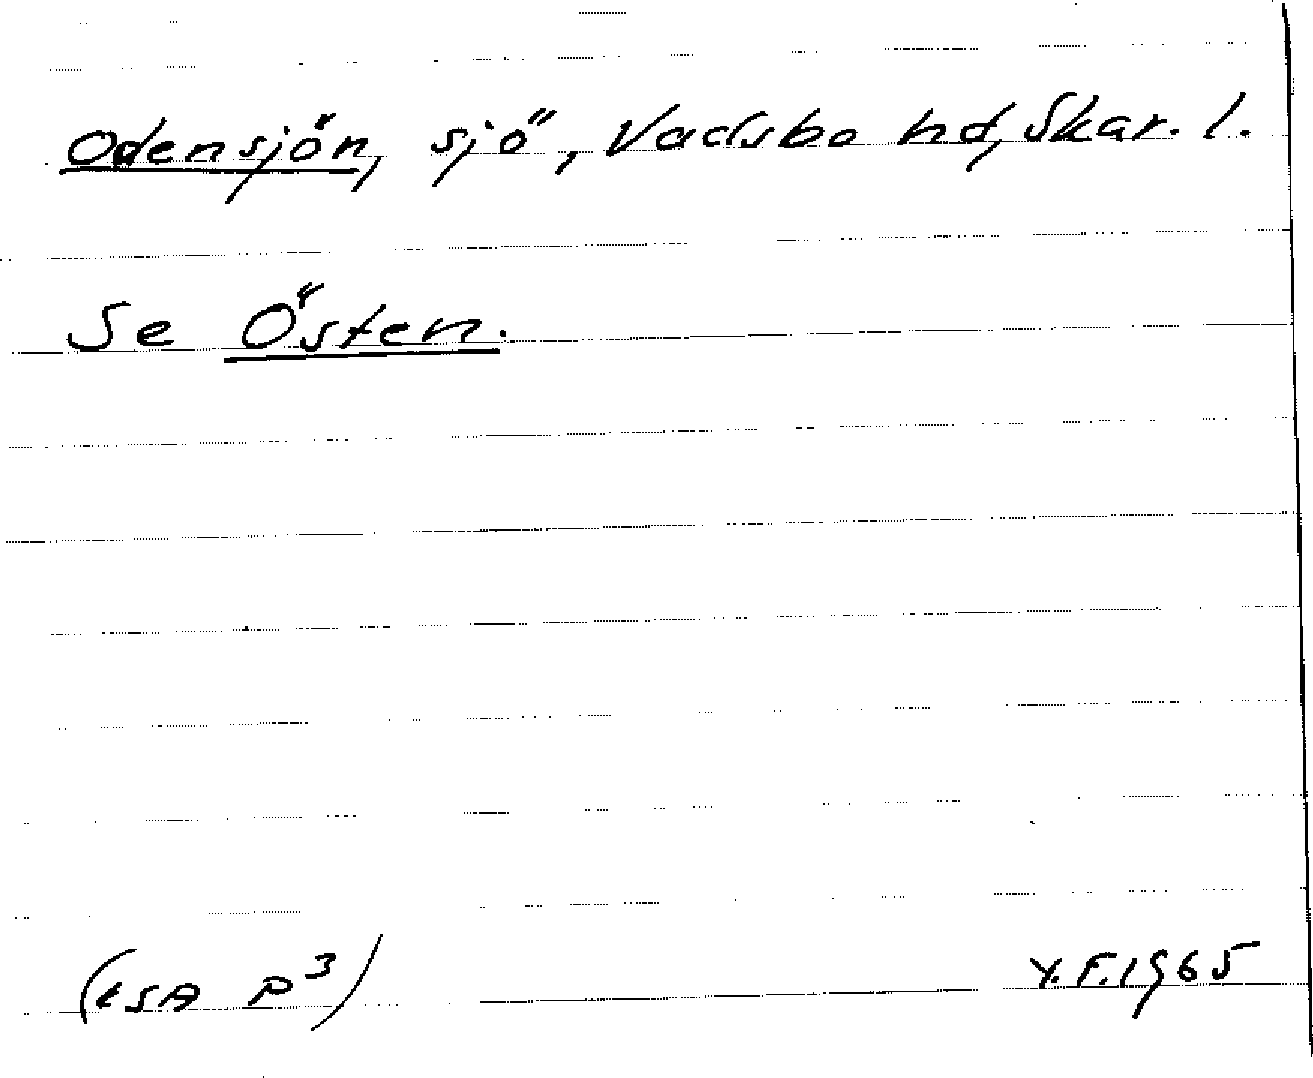 Odensjön, sjö, Vadsbo hd, Skar. l.
Se Östen.
(LSA P3)
Y.F. 1965